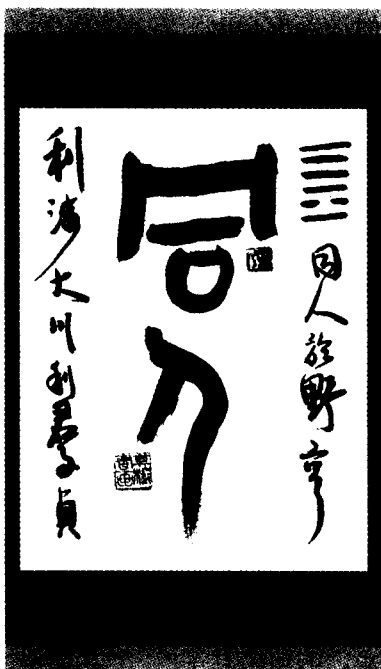 同人於野亨
同人
利涉大川利君子貞